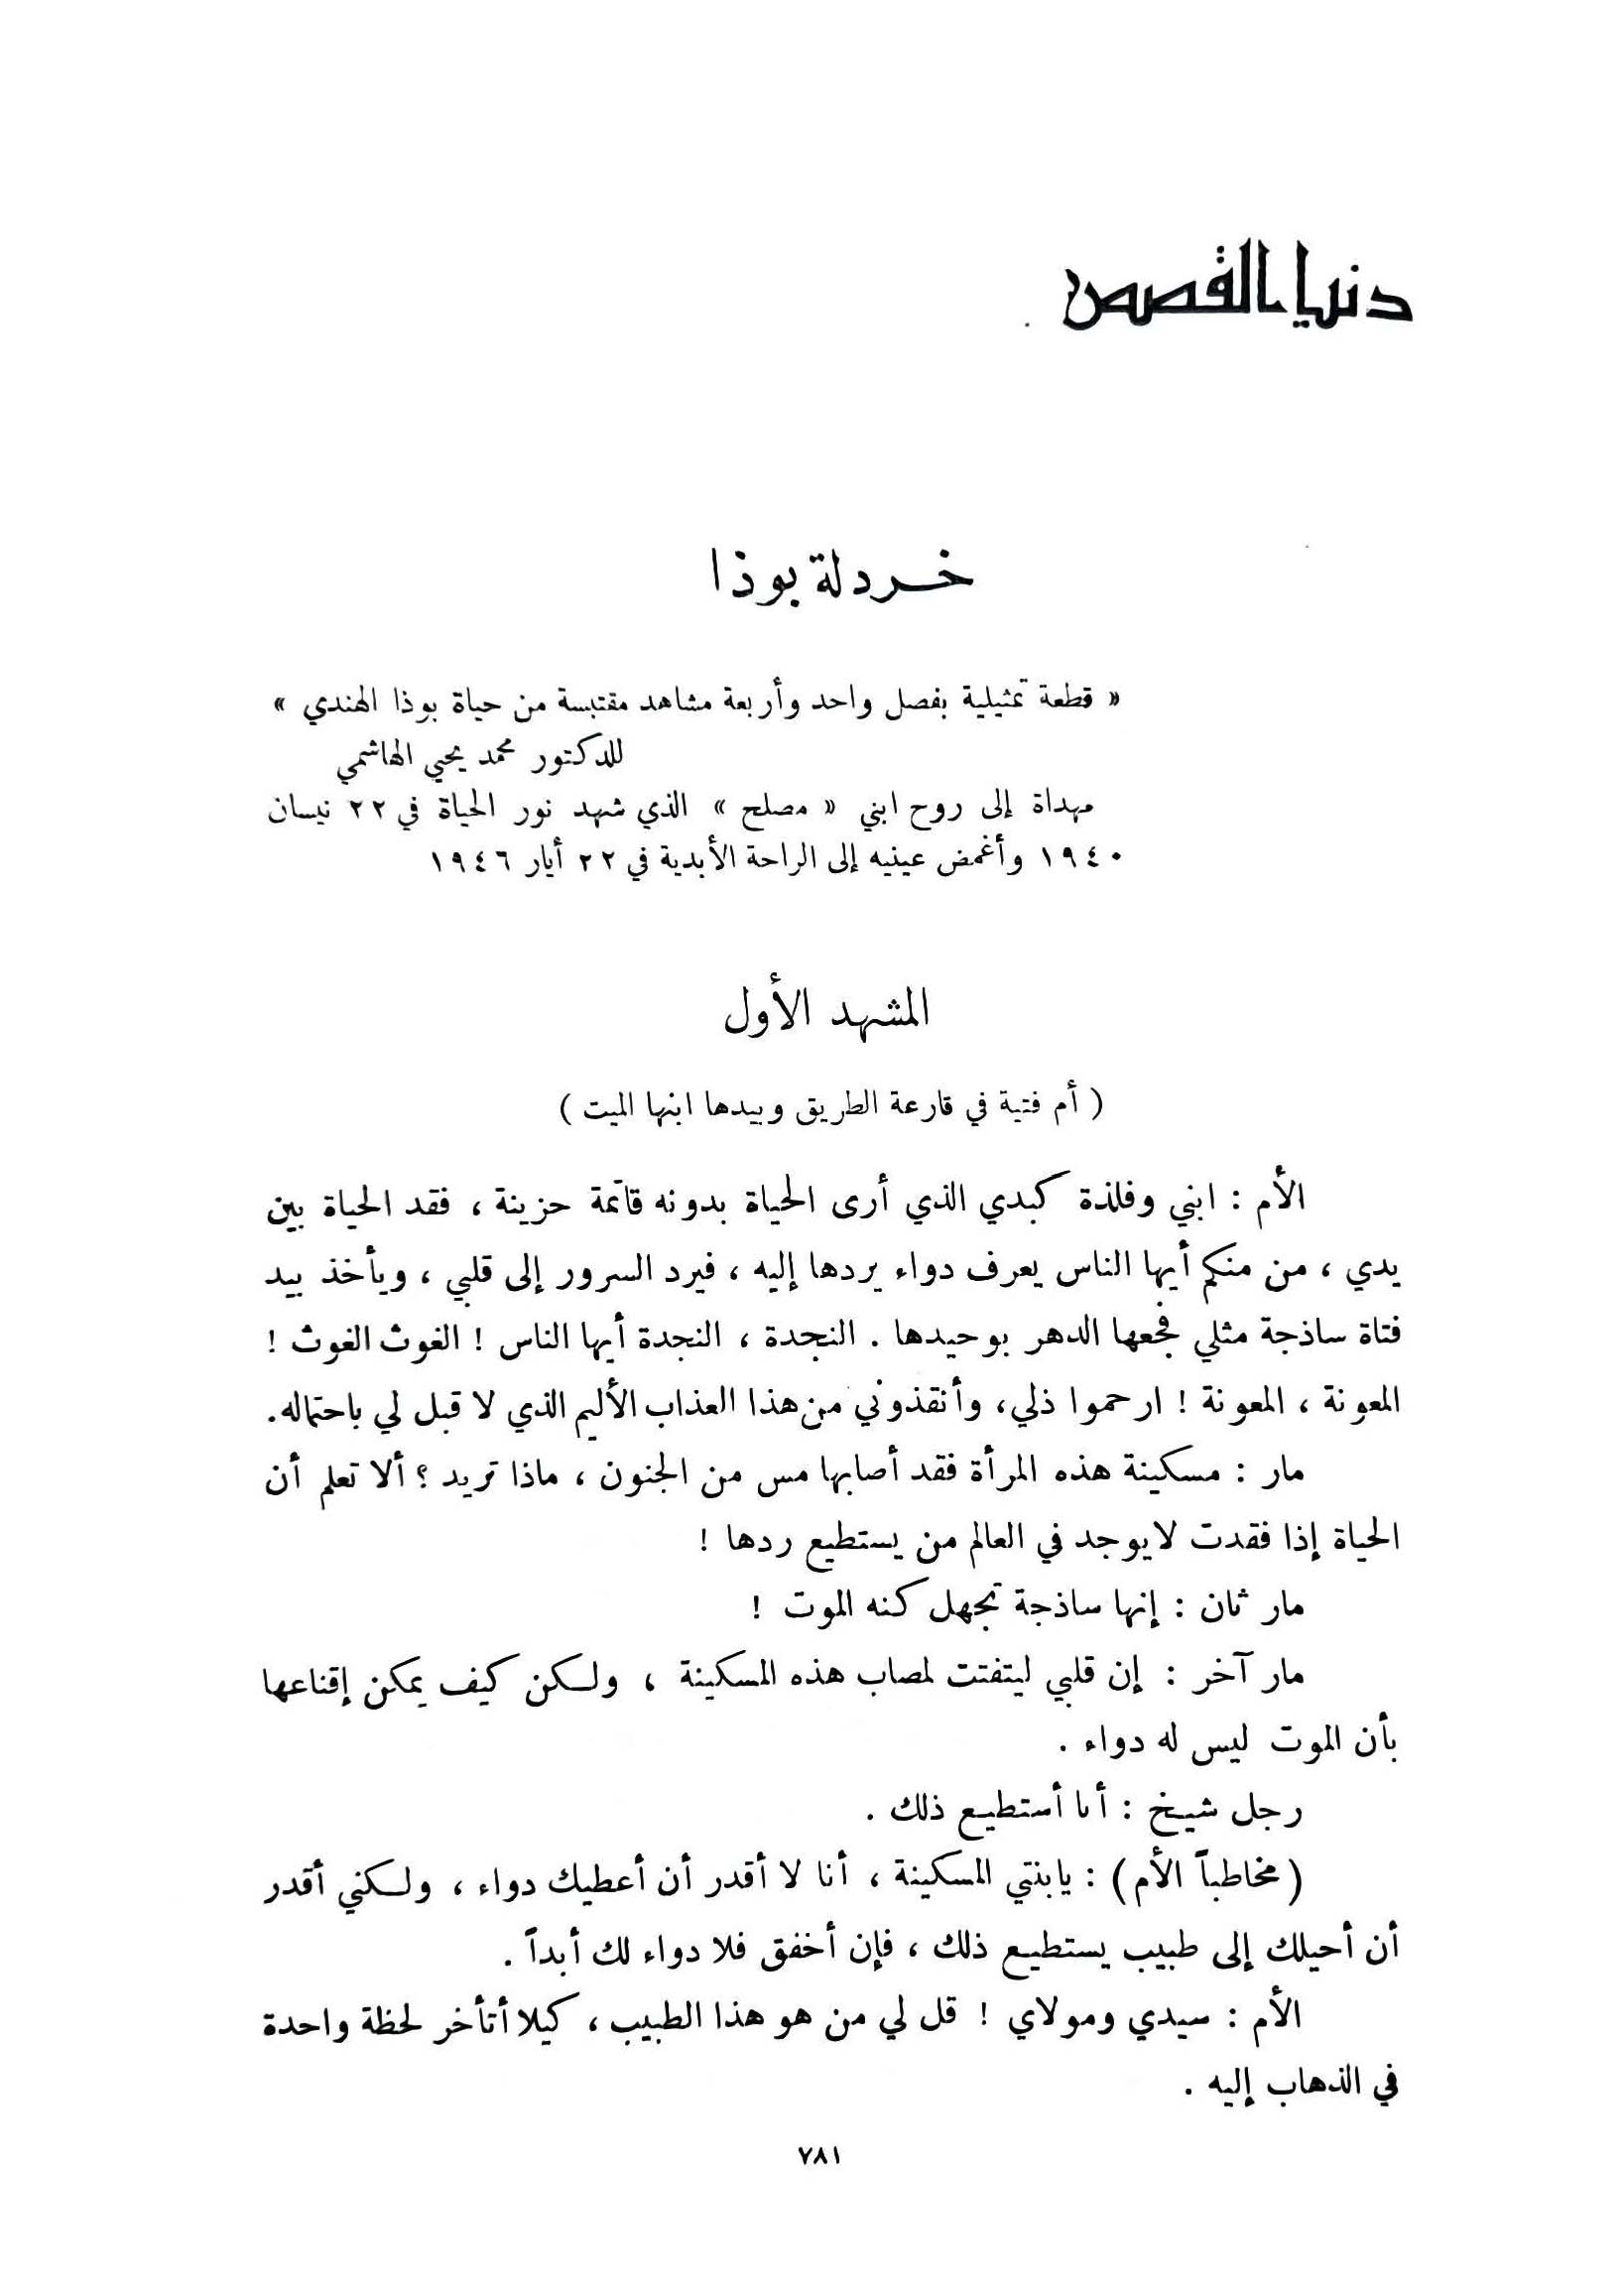 دنيا القصص
خردلة بوذا
« قطعة تمثيلية بفصل واحد وأربعة مشاهد مقتبسة من حياة بوذا الهندي »
للدكتور محمد يحيي الهاشمي
مهداة إلى روح ابني « مصلح » الذي شهد نور الحياة في ٢٢ نيسان
١٩٤٠ وأغمض عينيه إلى الراحة الأبدية في ٢٢ أيار ١٩٤٦
المشهد الأول
( أم فتية في قارعة الطريق وبيدها ابنها الميت )
الأم : ابني وفلذة كبدي الذي أرى الحياة بدونه قاتمة حزينة ، فقد الحياة بين
يدي ، من منكم أيها الناس يعرف دواء يردها إليه ، فيرد السرور إلى قلبي ، ويأخذ بيد
فتاة ساذجة مثلي فجعها الدهر بوحيدها . النجدة ، النجدة أيها الناس ! الغوث الغوث !
المعونة ، المعونة ! ارحموا ذلي، وأنقذوني من هذا العذاب الأليم الذي لا قبل لي باحتماله.
مار : مسكينة هذه المرأة فقد أصابها مس من الجنون ، ماذا تريد ؟ ألا تعلم أن
الحياة إذا فقدت لايوجد في العالم من يستطيع ردها !
مار ثان : إنها ساذجة تجهل كنه الموت !
مار آخر : إن قلبي ليتفتت لمصاب هذه المسكينة ، ولكن كيف يمكن إقناعها
بأن الموت ليس له دواء .
رجل شيخ : أنا أستطيع ذلك .
( مخاطباً الأم ) : يابنتي المسكينة ، أنا لا أقدر أن أعطيك دواء ، ولكني أقدر
أن أحيلك إلى طبيب يستطيع ذلك ، فإن أخفق فلا دواء لك أبداً .
الأم : سيدي ومولاي ! قل لي من هو هذا الطبيب ، كيلا أتأخر لحظة واحدة
في الذهاب إليه .
٧٨١